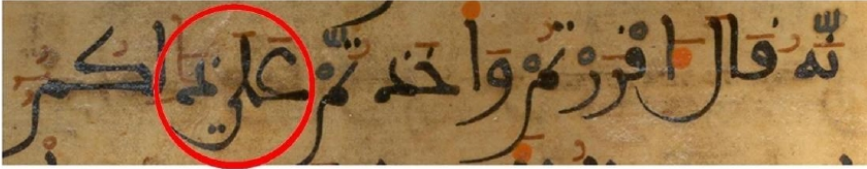 نّه قال اقررتم واخذتم على ذلكم